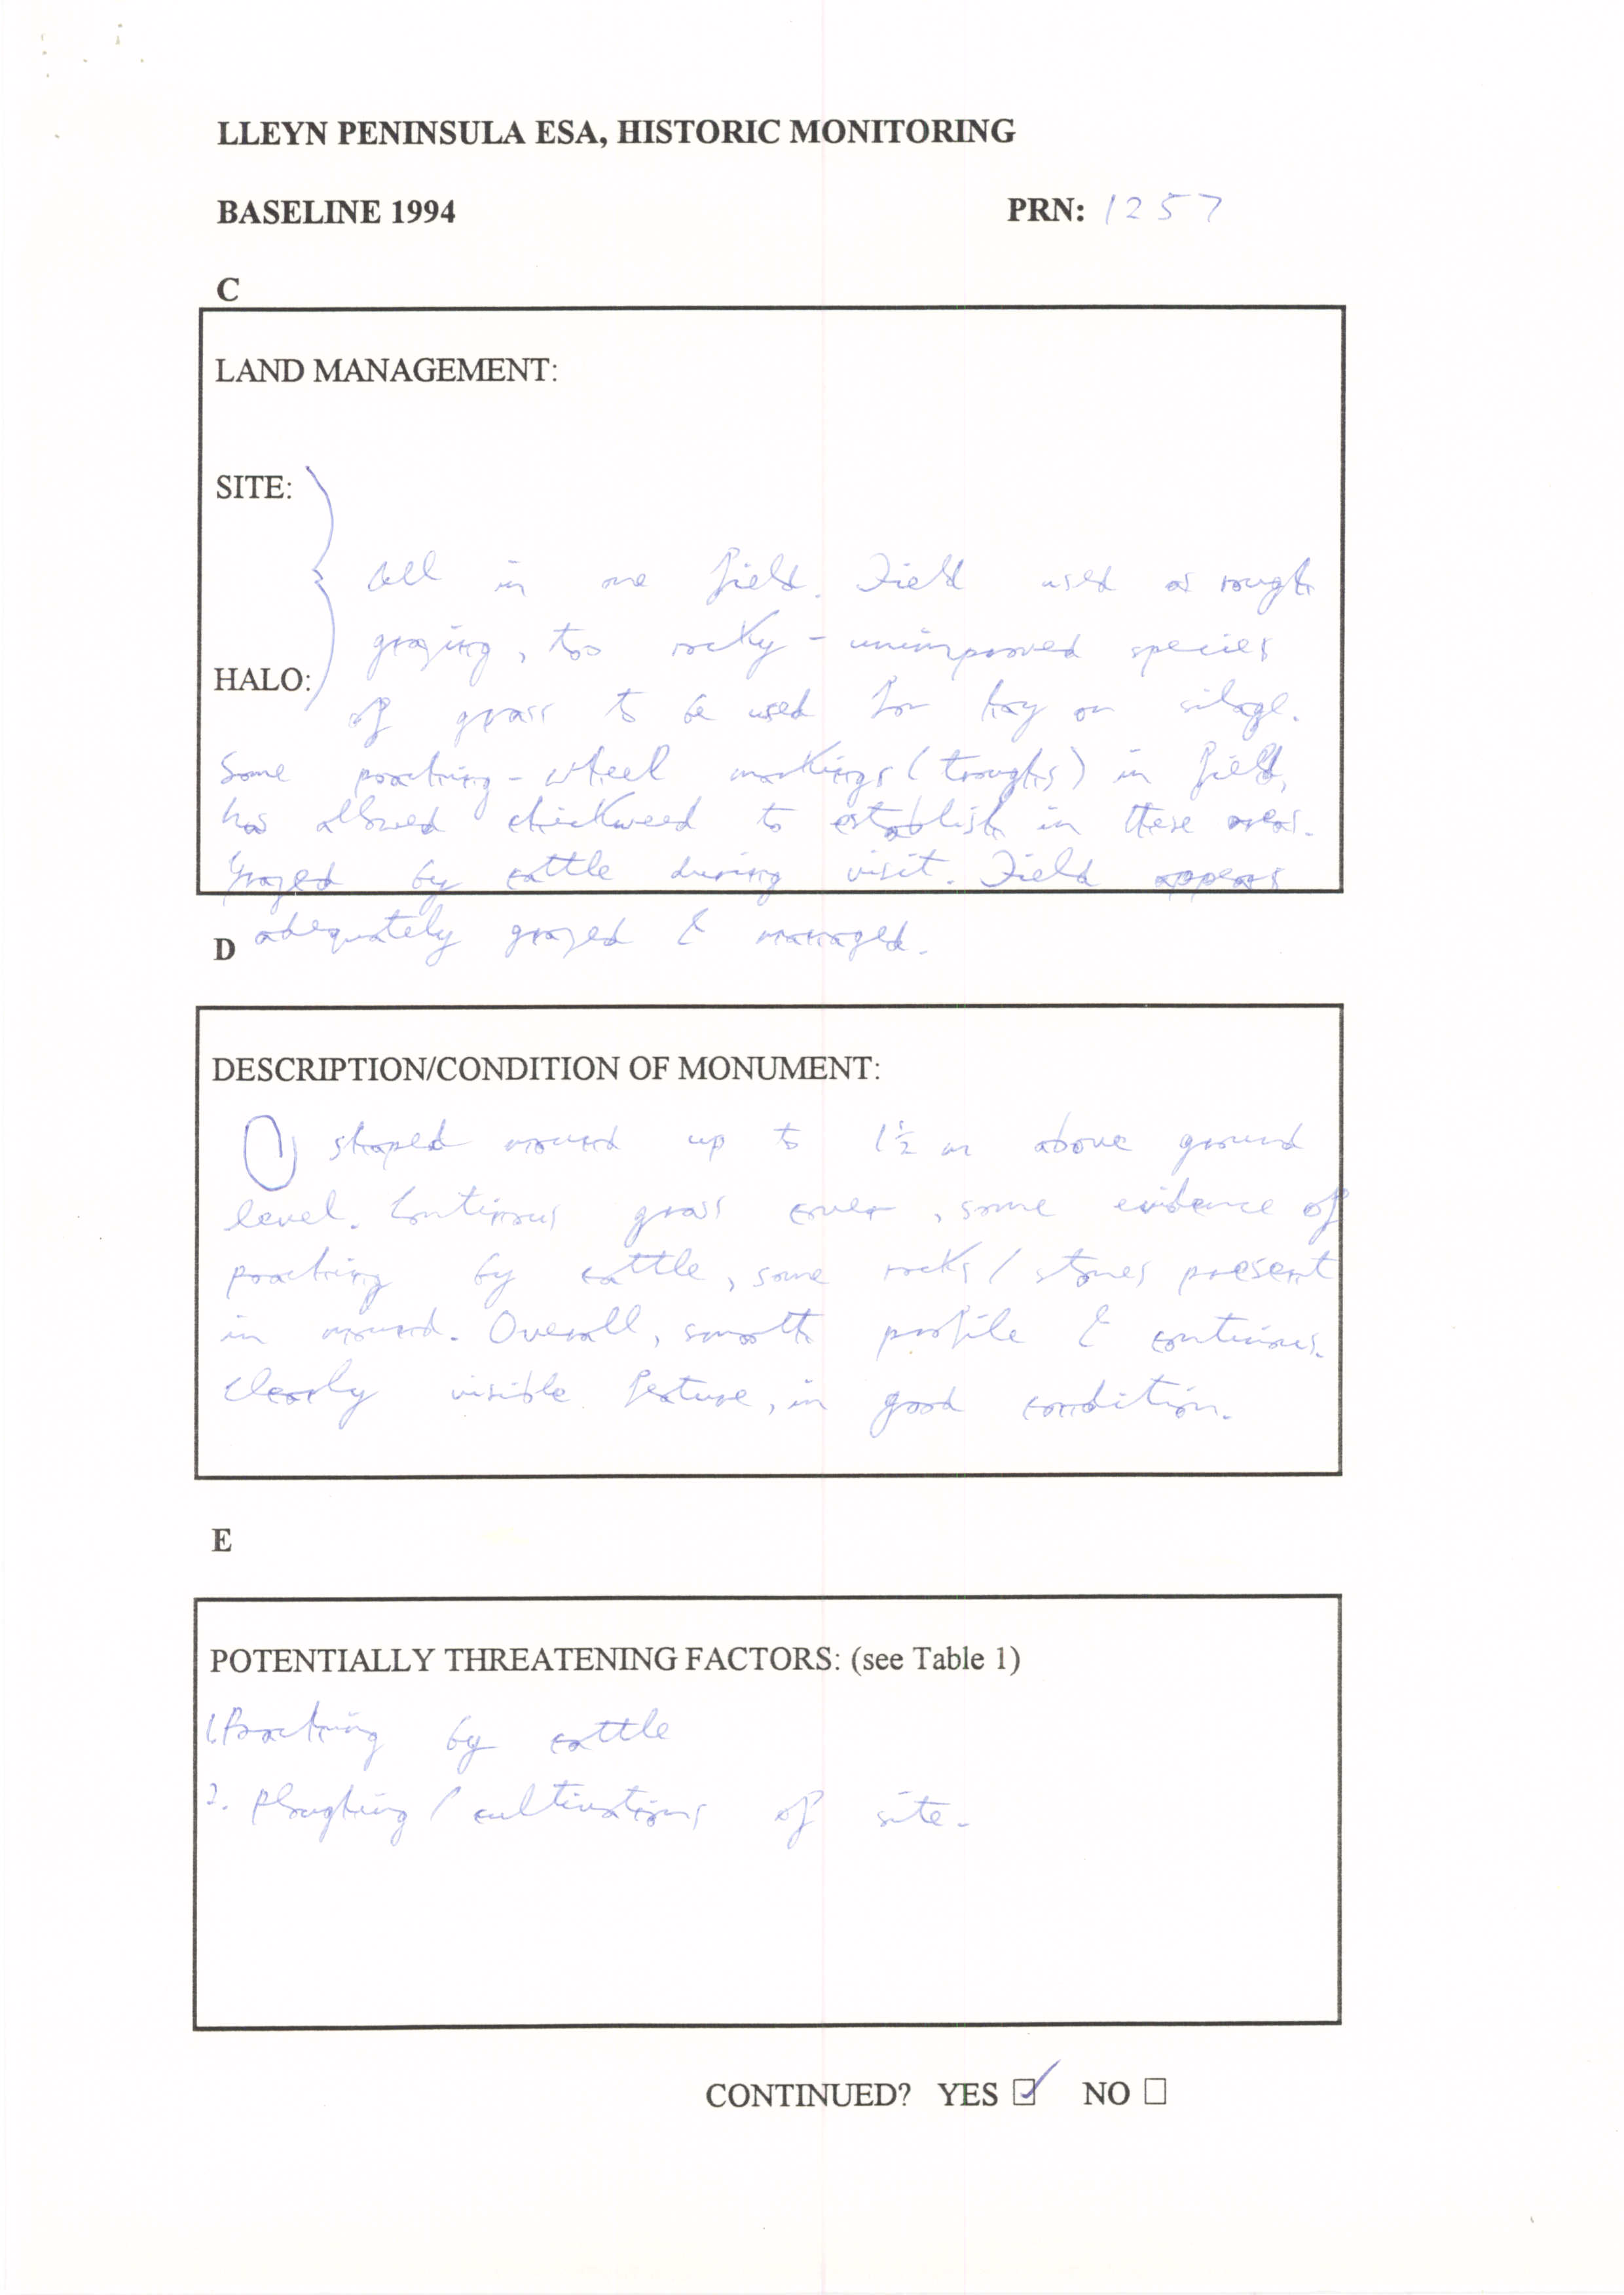 LLEYN PENINSULA ESA, HISTORIC MONITORING
BASELINE 1994 PRN: 1257
C
LAND MANAGEMENT:
SITE:
All in one field. Field used as rough
grazing, too rocky - unimproved species
HALO:
of grass to be used for hay or silage.
Some poaching - wheel markings (troughs) in field,
has allowed chickweed to establish in these areas.
Grazed by cattle during visit. Field appears
adequately grazed & managed.
D
DESCRIPTION/CONDITION OF MONUMENT:
shaped mound up to 1½ m above ground
level. Continous grass cover, some evidence of
poaching by cattle, some rocks / stones present
in mound. Overall, smooth profile & continous.
Clearly visible feature, in good condition.
E
POTENTIALLY THREATENING FACTORS: (see Table 1)
1. Poaching by cattle
2. Ploughing / cultivations of site.
CONTINUED? YES ☑ NO ☐